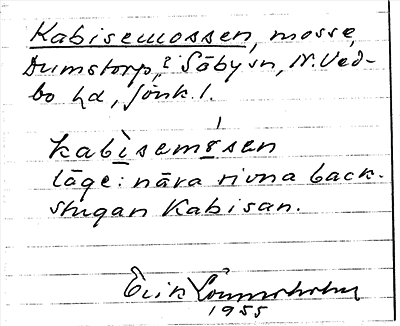 Kabisemossen, mosse,
Dumstorp, Säby sn, N. Ved-
bo hd, Jönk. l.
kabisemosen
läge: nära rivna back-
stugan Kabisan.
Erik
1955